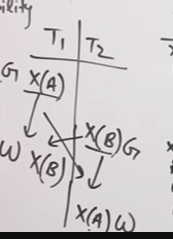 ility
T₁ T₂
G X(A)
X(B) G
W X(B)
X(A) W